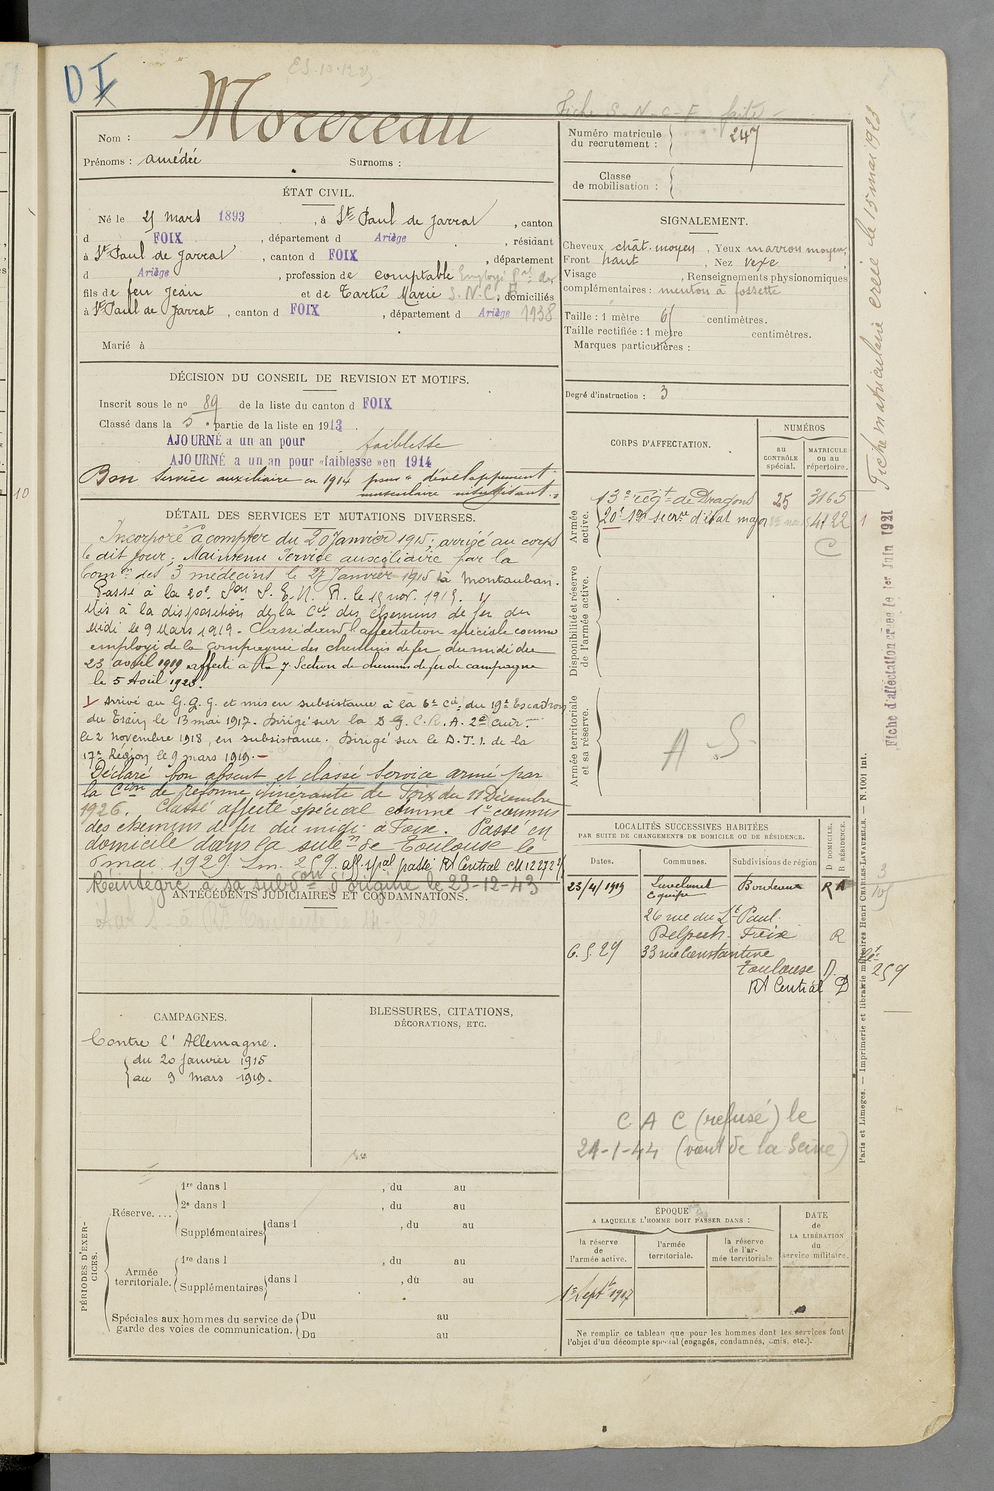 D I
ES. 10.12.23
Morereau
Fiche S-N-C-F faite
Nom :
Prénoms : amédée
Surnoms :
Numéro matricule du recrutement : 247
Classe de mobilisation :
ÉTAT CIVIL.
Né le 25 mars 1893, à St Paul de Jarrat, canton
d FOIX, département d Ariège, résidant
à St Paul de Jarrat, canton d FOIX, département
d Ariège, profession de comptable Employé
fils de feu Jean et de Tartié Marie S.N.C.F, domiciliés
à St Paul de Jarrat, canton d FOIX, département d Ariège 1938
Marié à
SIGNALEMENT.
Cheveux chât. moyen, Yeux marron moyen,
Front haut, Nez vexe
Visage, Renseignements physionomiques
complémentaires : menton à fossette
Taille : 1 mètre 61 centimètres.
Taille rectifiée : 1 mètre centimètres.
Marques particulières :
Degré d'instruction : 3
DÉCISION DU CONSEIL DE REVISION ET MOTIFS.
Inscrit sous le no 89 de la liste du canton d FOIX
Classé dans la 5e partie de la liste en 1913.
AJOURNÉ a un an pour faiblesse
AJOURNÉ a un an pour «faiblesse» en 1914
Bon service auxiliaire en 1914 pour "développement
musculaire insuffisant".
DÉTAIL DES SERVICES ET MUTATIONS DIVERSES.
Incorporé à compter du 20 Janvier 1915. arrivé au corps
le dit jour. Maintenu Service auxiliaire par la
Comon des 3 médecins le 27 Janvier 1915 à Montauban.
Passé à la 20e Son S. E. M. R. le 15 nov. 1915. 1/
Mis à la disposition de la Cie des Chemins de fer du
Midi le 9 Mars 1919. Classé dient l'affectation spéciale comme
employé de la Compagnie des chemins de fer du midi du
23 avril 1919 affecté à la 7e Section de chemins de fer de campagne
le 5 Août 1923.
1/ Arrivé au G.Q.G. et mis en subsistance à la 6e Cie du 19e Escadron
du Train le 13 mai 1917. Dirigé sur la
le 2 novembre 1918, en subsistance. Dirigé sur le D.T.I. de la
17e Région le 9 mars 1919.
Déclaré bon absent et classé Service armé par
la Cion de réforme itinérante de Foix du 11 Décembre
1926. Classé affecté spécial comme 1er commis
des chemins de fer du midi à Foix. Passé en
domicile dans la subon de Toulouse le
6 mai 1929 Lm. 259. aff. spal passé RA Central
Réintégré à sa subdon d'origine le 29-12-43
ANTÉCÉDENTS JUDICIAIRES ET CONDAMNATIONS.
CORPS D'AFFECTATION.
NUMÉROS
au CONTRÔLE spécial.
MATRICULE ou au répertoire.
Armée active.
13e Régt de Dragons 25 3165
20e Son secr. d'état major 4122
C
Disponibilité et réserve de l'armée active.
Armée territoriale et sa réserve.
A S
LOCALITÉS SUCCESSIVES HABITÉES
PAR SUITE DE CHANGEMENTS DE DOMICILE OU DE RÉSIDENCE.
Dates.
Communes.
Subdivisions de région
D DOMICILE.
R RÉSIDENCE.
23/4/1919 Lavelanet Bordeaux R
26 rue du Lt Paul
Delpech Foix R
6.5 29 33 rue Constantine
Toulouse D.
RA Central D
C A C (refusé) le
21-1-44 (vient de la Seine)
CAMPAGNES.
Contre l'Allemagne.
du 20 janvier 1915
au 9 mars 1919.
BLESSURES, CITATIONS,
DÉCORATIONS, ETC.
PÉRIODES D'EXERCICES.
Réserve....
1re dans l , du au
2e dans l , du au
Supplémentaires dans l , du au
Armée territoriale.
1re dans l , du au
Supplémentaires dans l , du au
Spéciales aux hommes du service de garde des voies de communication.
Du au
Du au
ÉPOQUE
A LAQUELLE L'HOMME DOIT PASSER DANS :
la réserve de l'armée active.
l'armée territoriale.
la réserve de l'armée territoriale
DATE de LA LIBÉRATION du service militaire.
1er Septbre 1917
Ne remplir ce tableau que pour les hommes dont les services font
l'objet d'un décompte spécial (engagés, condamnés, omis, etc.).
Fiche matriculaire créée le 15 mai 1923
Fiche d'affectation créée le 1er Juin 1921
Paris et Limoges. — Imprimerie et librairie militaires Henri CHARLES-LAVAUZELLE. — N. 1001 int.
259
10